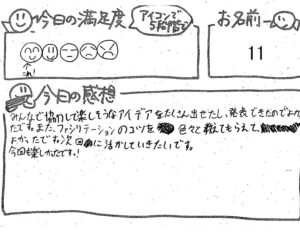 今日の満足度
アイコンで
5段階で
お名前
11
これ!
今日の感想
みんなで協力して楽しそうなアイデアをたくさん出せたし、発表できたのでよかっ
たです。また、ファシリテーションのコツを 色々と教えてもらえて、
よかったです。次回に活かしていきたいです。
今回も楽しかったです!